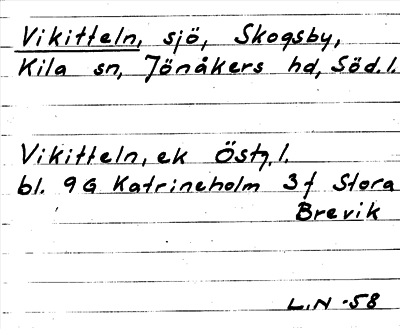 Vikitteln, sjö, Skogsby,
Kila sn, Jönåkers hd, Söd.l.
Vikitteln, ek Östg.l.
bl. 9G Katrineholm 3f Stora
Brevik
L.N -58